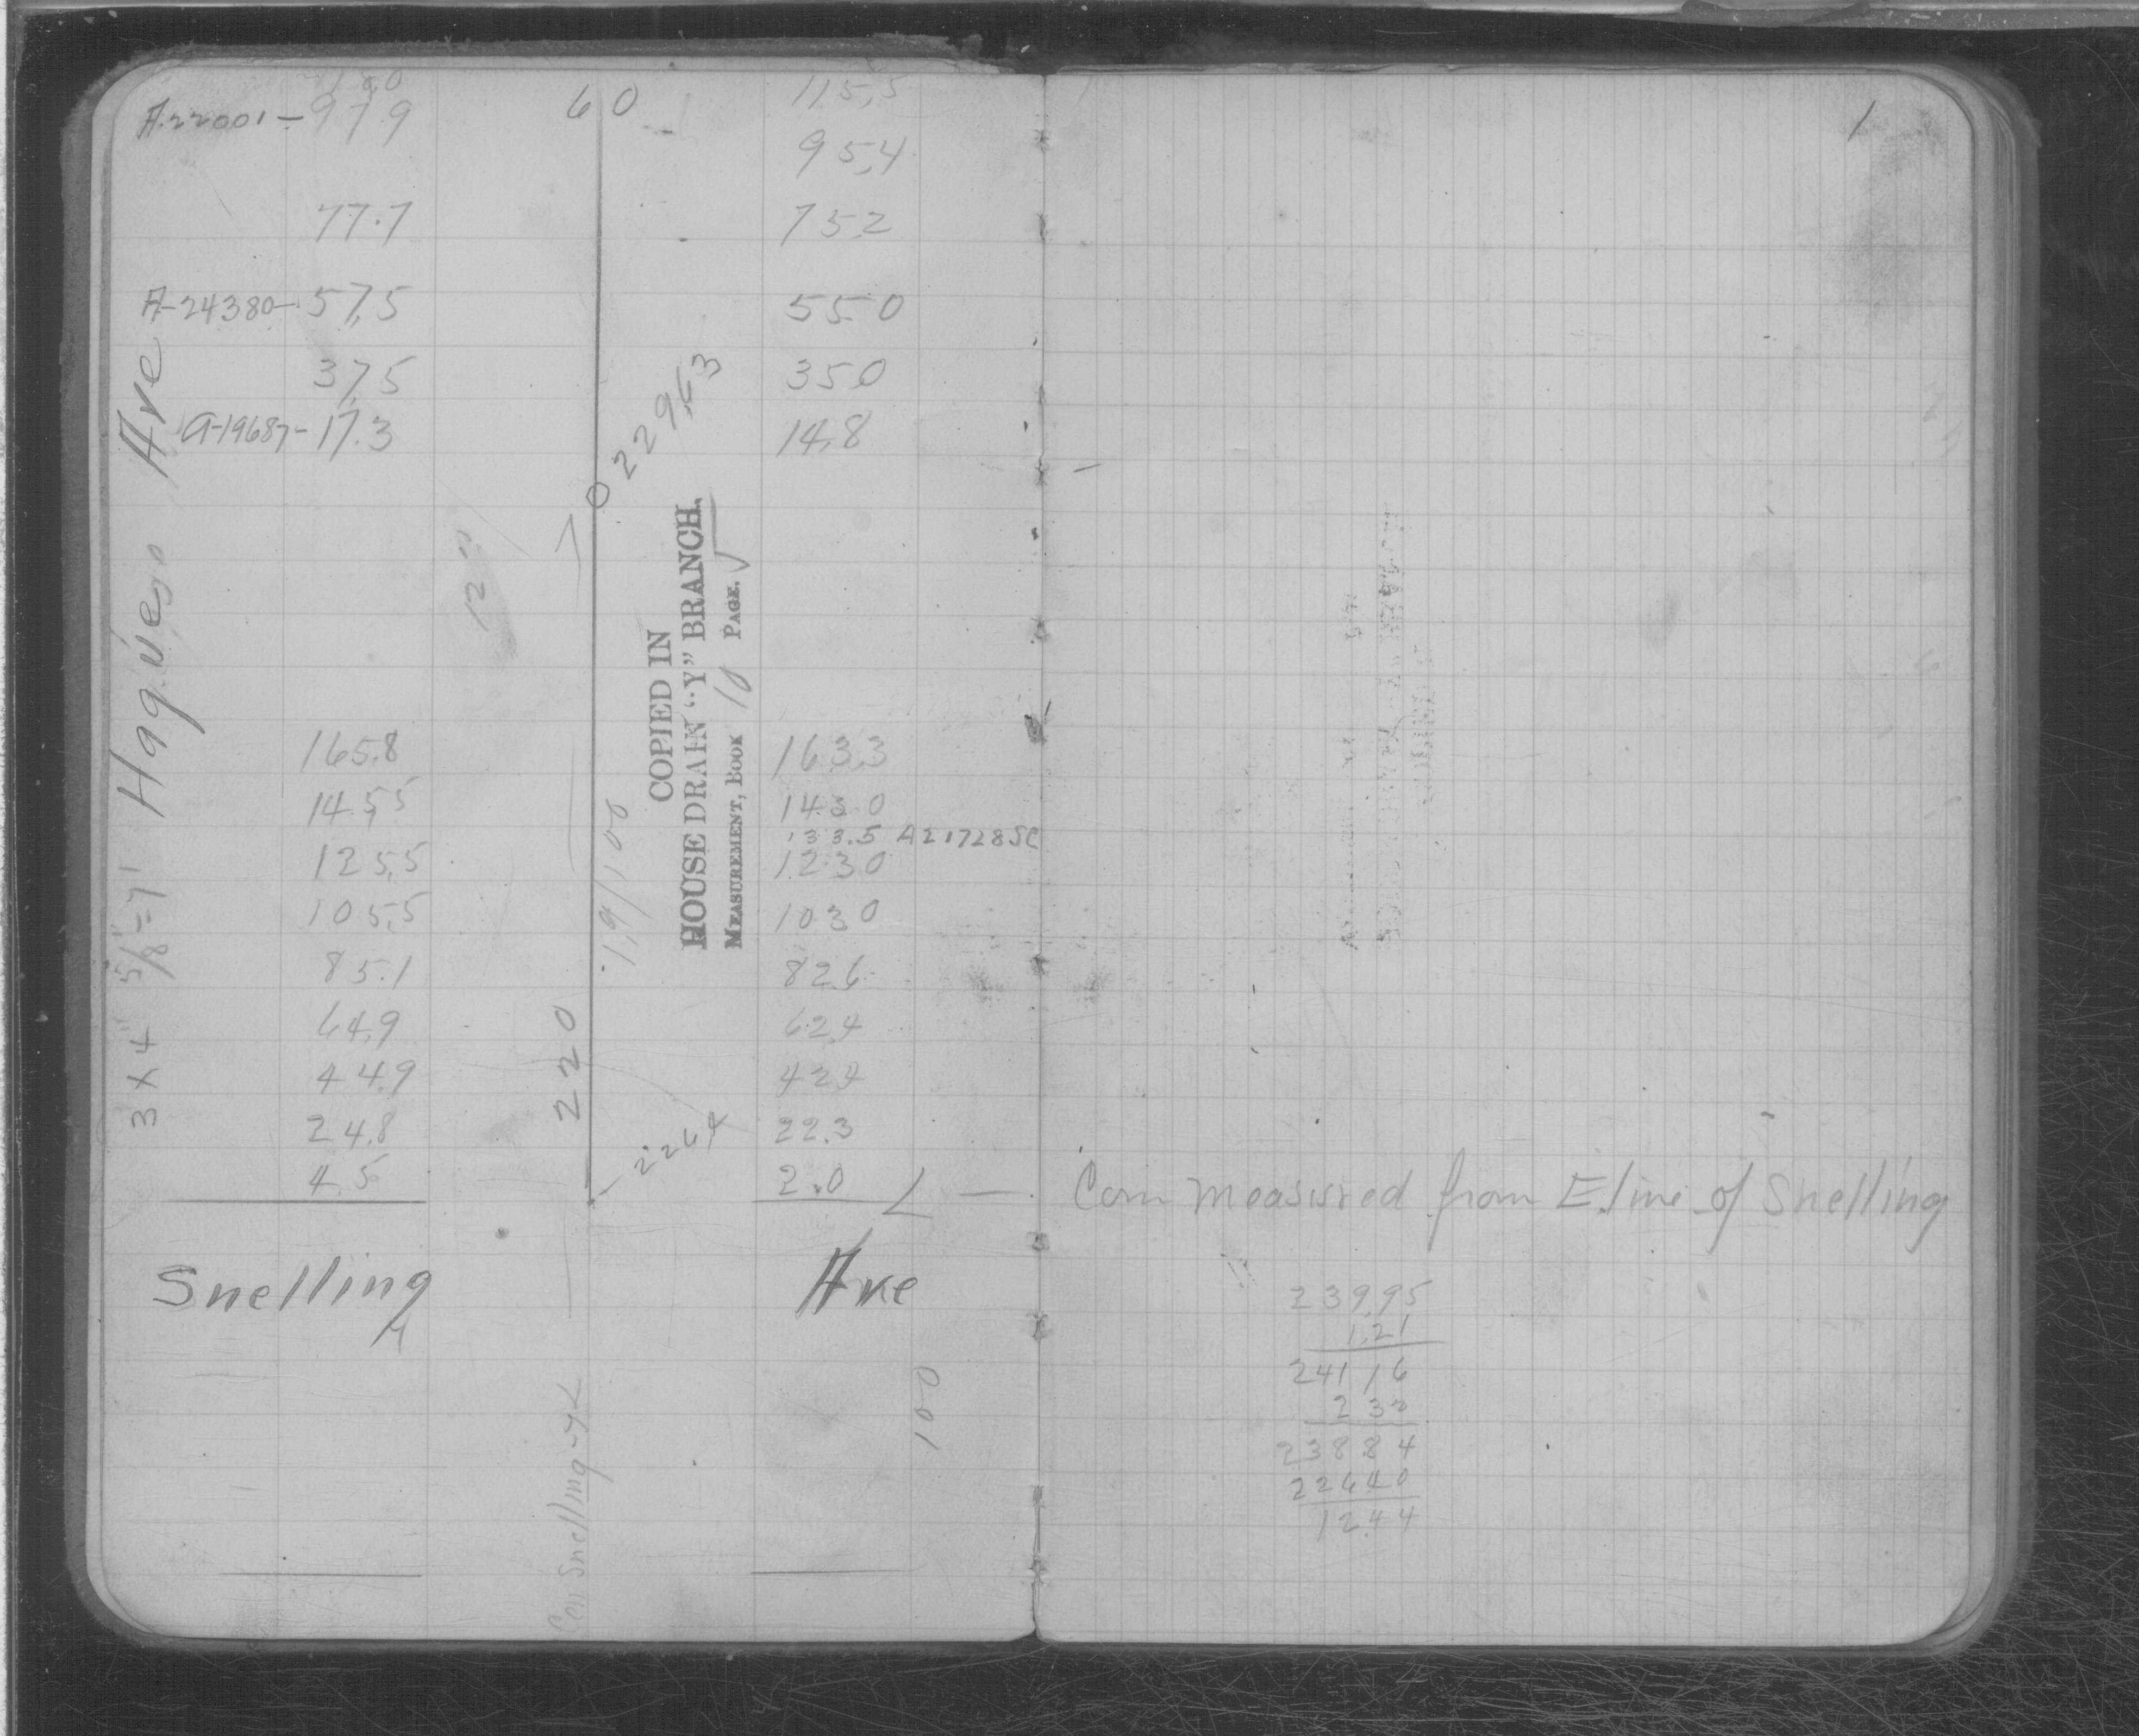 60 115.5
A.22001 - 97.9
95.4
77.7 75.2
A-24380- 57.5 55.0
37.5 35.0
A-19687- 17.3 14.8
Hague Ave
0
229.63
12"
COPIED IN
HOUSE DRAIN "Y" BRANCH.
MEASUREMENT, BOOK 10 PAGE.
165.8 163.3
145.5 143.0
133.5 A21728SC
125.5 123.0
105.5 103.0
85.1 82.6
64.9 62.4
44.9 42.4
24.8 22.3
4.5 2.0
3 x 4" 5/8" = 7'
1.9/100
220
226.4
Snelling Ave
100
Cen Snelling
1
Com measured from E. line of Snelling
239.95
1.21
241 16
2 32
238 84
226 40
12.44